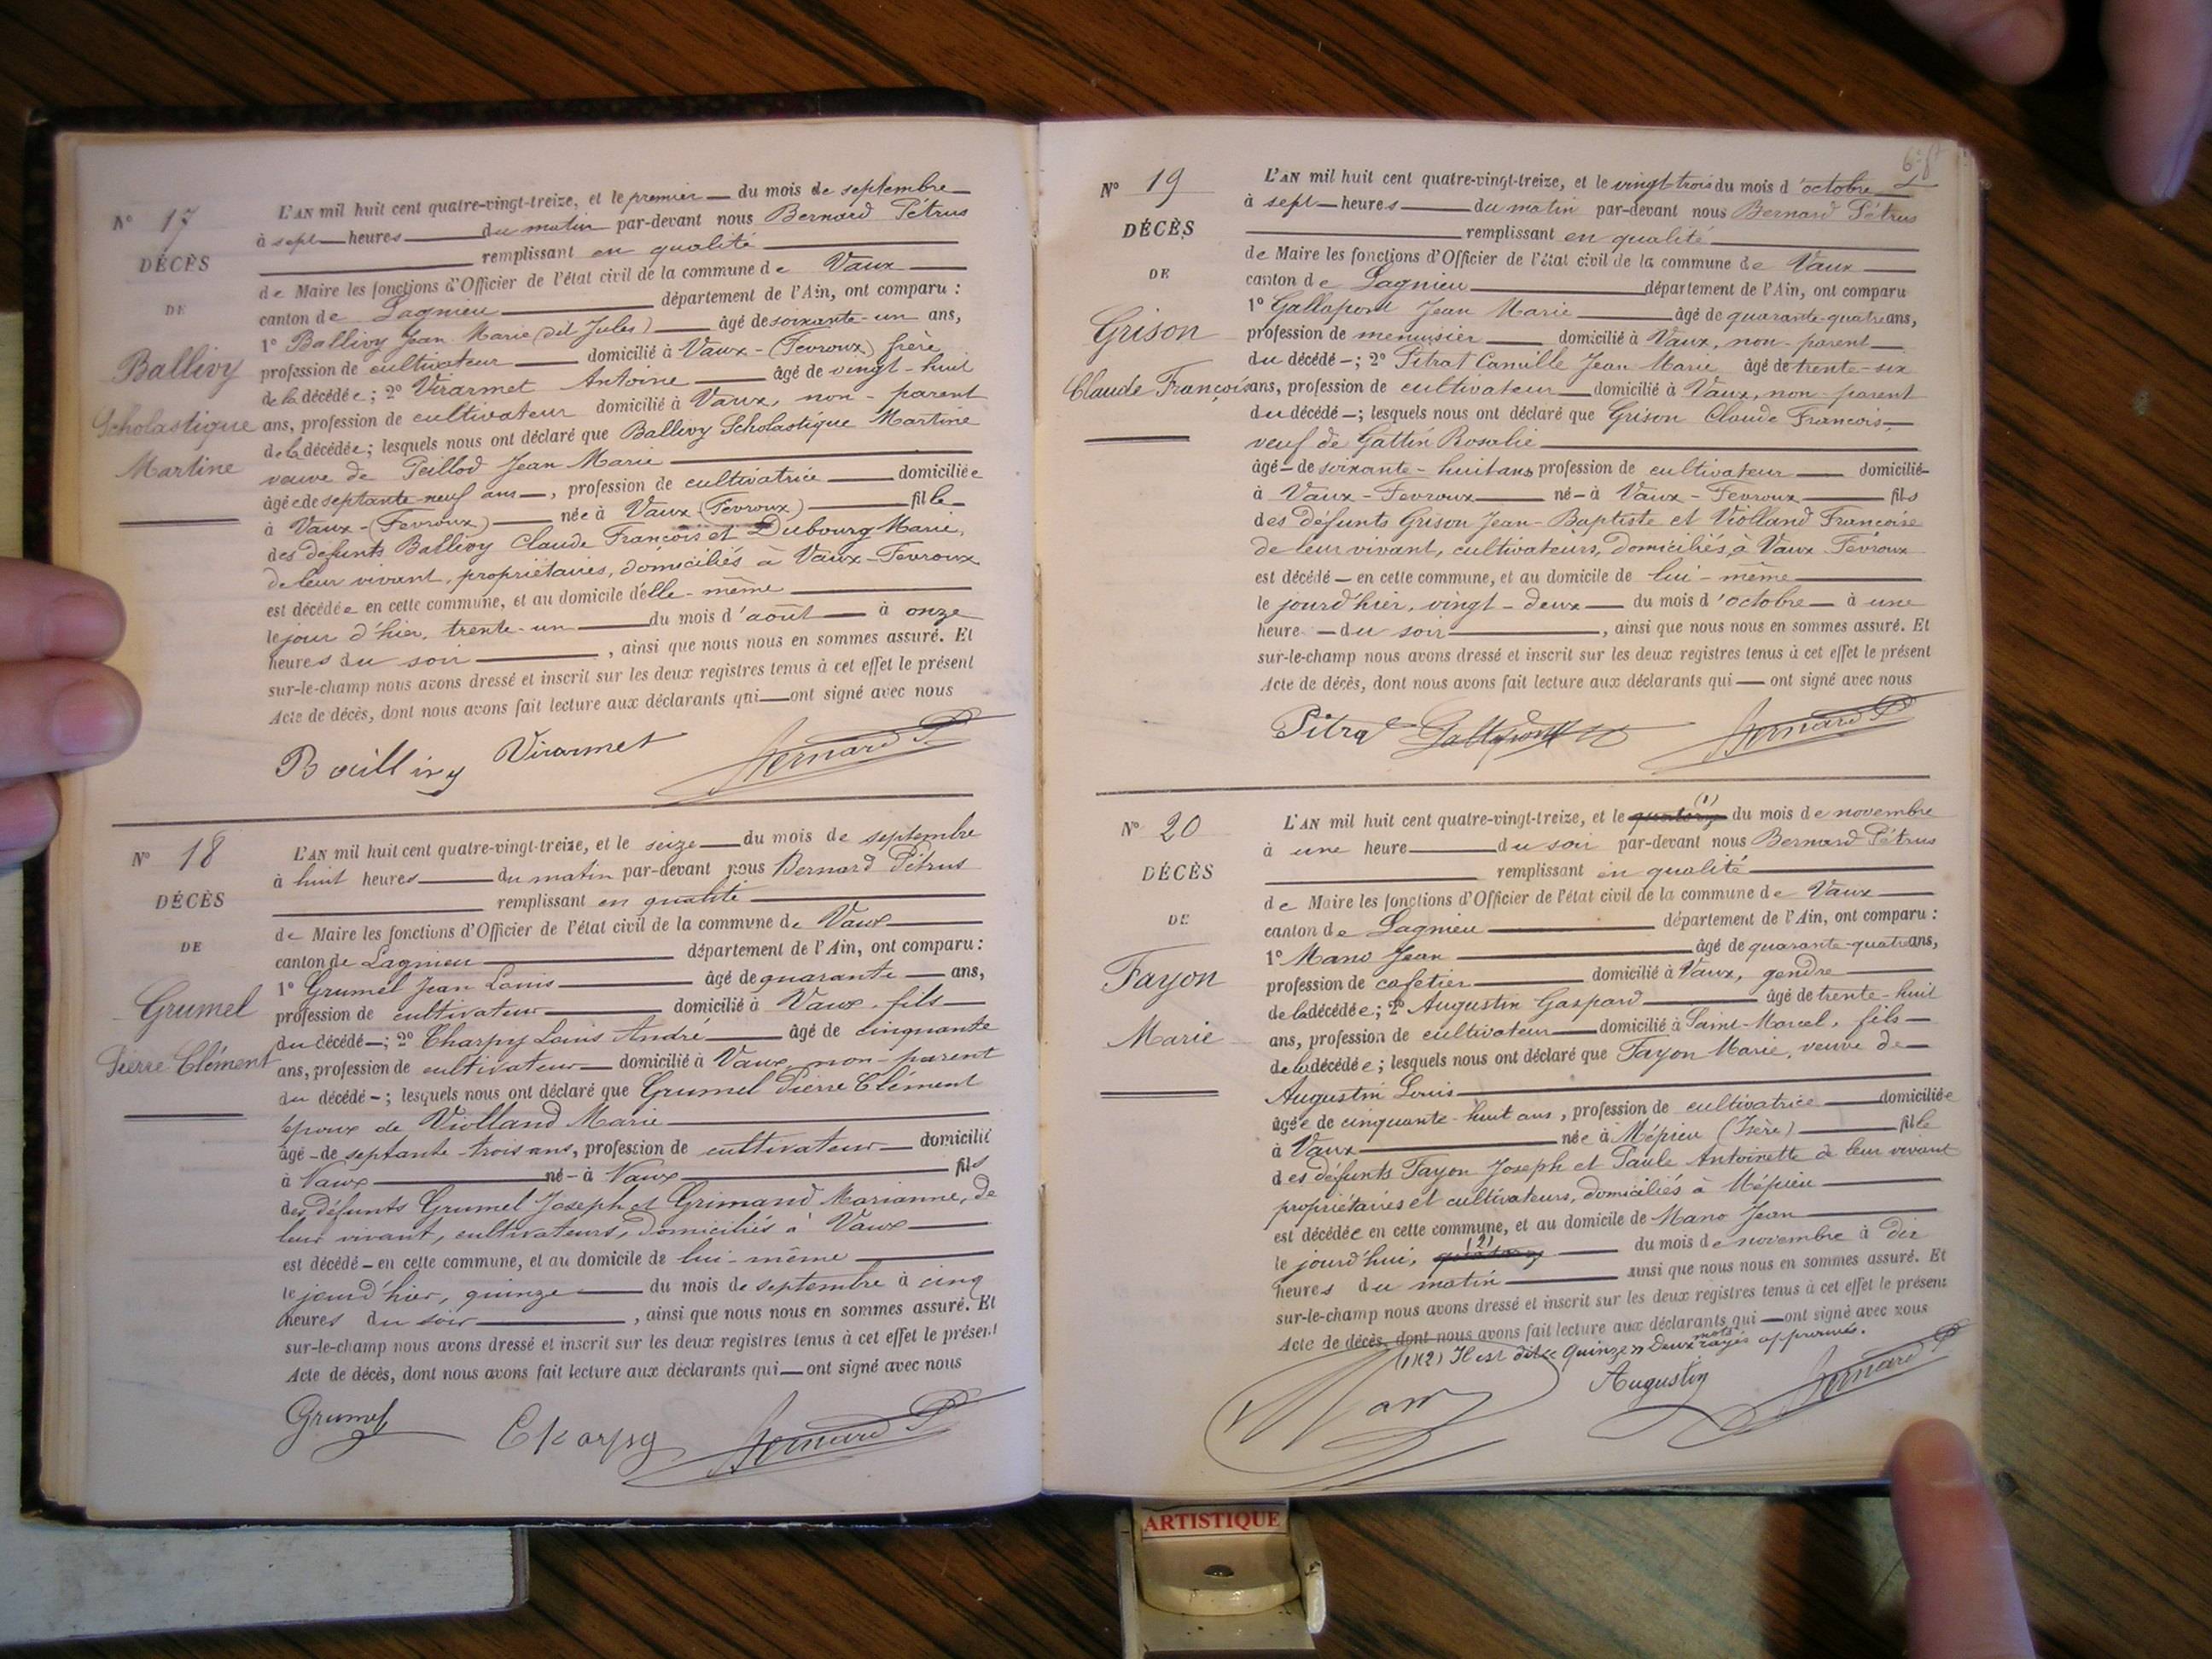 N° 17
DÉCÈS
DE
Ballivy
Scholastique
Martine
L'AN mil huit cent quatre-vingt-treize, et le premier du mois de septembre
à sept heures du matin par-devant nous Bernard Pétrus
remplissant en qualité
de Maire les fonctions d'Officier de l'état civil de la commune de Vaux
canton de Lagnieu département de l'Ain, ont comparu :
1° Ballivy Jean Marie (dit Jules) âgé de soixante-un ans,
profession de cultivateur domicilié à Vaux-(Fevroux) frère
de la décédée ; 2° Virarmet Antoine âgé de vingt-huit
ans, profession de cultivateur domicilié à Vaux, non-parent
de la décédée ; lesquels nous ont déclaré que Ballivy Scholastique Martine
veuve de Peillod Jean Marie
âgée de septante-neuf ans, profession de cultivatrice domiciliée
à Vaux-(Fevroux) née à Vaux (Fevroux) fille
des défunts Ballivy Claude François et Dubourg Marie,
de leur vivant, propriétaires, domiciliés à Vaux-Fevroux
est décédée en cette commune, et au domicile d'elle-même
le jour d'hier, trente-un du mois d'août à onze
heures du soir, ainsi que nous nous en sommes assuré. Et
sur-le-champ nous avons dressé et inscrit sur les deux registres tenus à cet effet le présent
Acte de décès, dont nous avons fait lecture aux déclarants qui ont signé avec nous
Baillivy Virarmet Bernard P.
N° 18
DÉCÈS
DE
Grumel
Pierre Clément
L'AN mil huit cent quatre-vingt-treize, et le seize du mois de septembre
à huit heures du matin par-devant nous Bernard Pétrus
remplissant en qualité
de Maire les fonctions d'Officier de l'état civil de la commune de Vaux
canton de Lagnieu département de l'Ain, ont comparu :
1° Grumel Jean Louis âgé de quarante ans,
profession de cultivateur domicilié à Vaux, fils
du décédé ; 2° Charpy Louis André âgé de cinquante
ans, profession de cultivateur domicilié à Vaux, non-parent
du décédé ; lesquels nous ont déclaré que Grumel Pierre Clément
époux de Violland Marie
âgé de septante-trois ans, profession de cultivateur domicilié
à Vaux né à Vaux fils
des défunts Grumel Joseph et Grimand Marianne, de
leur vivant, cultivateurs, domiciliés à Vaux
est décédé en cette commune, et au domicile de lui-même
le jour d'hier, quinze du mois de septembre à cinq
heures du soir, ainsi que nous nous en sommes assuré. Et
sur-le-champ nous avons dressé et inscrit sur les deux registres tenus à cet effet le présent
Acte de décès, dont nous avons fait lecture aux déclarants qui ont signé avec nous
Grumel Charpy Bernard P
N° 19
DÉCÈS
DE
Grison
Claude François
L'AN mil huit cent quatre-vingt-treize, et le vingt-trois du mois d'octobre
à sept heures du matin par-devant nous Bernard Pétrus
remplissant en qualité
de Maire les fonctions d'Officier de l'état civil de la commune de Vaux
canton de Lagnieu département de l'Ain, ont comparu
1° Gallapont Jean Marie âgé de quarante-quatre ans,
profession de menuisier domicilié à Vaux, non-parent
du décédé ; 2° Pitrat Camille Jean Marie âgé de trente-six
ans, profession de cultivateur domicilié à Vaux, non-parent
du décédé ; lesquels nous ont déclaré que Grison Claude François,
veuf de Gattin Rosalie
âgé de soixante-huit ans profession de cultivateur domicilié
à Vaux-Fevroux né à Vaux-Fevroux fils
des défunts Grison Jean-Baptiste et Violland Françoise
de leur vivant, cultivateurs, domiciliés à Vaux Févroux
est décédé en cette commune, et au domicile de lui-même
le jour d'hier, vingt-deux du mois d'octobre à une
heure du soir, ainsi que nous nous en sommes assuré. Et
sur-le-champ nous avons dressé et inscrit sur les deux registres tenus à cet effet le présent
Acte de décès, dont nous avons fait lecture aux déclarants qui ont signé avec nous
Pitrat Gallapont Bernard P
N° 20
DÉCÈS
DE
Fayon
Marie
L'AN mil huit cent quatre-vingt-treize, et le quatorze (1) du mois de novembre
à une heure du soir par-devant nous Bernard Pétrus
remplissant en qualité
de Maire les fonctions d'Officier de l'état civil de la commune de Vaux
canton de Lagnieu département de l'Ain, ont comparu :
1° Mano Jean âgé de quarante-quatre ans,
profession de cafetier domicilié à Vaux, gendre
de la décédée ; 2° Augustin Gaspard âgé de trente-huit
ans, profession de cultivateur domicilié à Saint-Marcel, fils
de la décédée ; lesquels nous ont déclaré que Fayon Marie, veuve de
Augustin Louis
âgée de cinquante-huit ans, profession de cultivatrice domiciliée
à Vaux née à Mépieu (Isère) fille
des défunts Fayon Joseph et Paule Antoinette de leur vivant
propriétaires et cultivateurs, domiciliés à Mépieu
est décédée en cette commune, et au domicile de Mano Jean
le jourd'hui, quatorze (2) du mois de novembre à dix
heures du matin ainsi que nous nous en sommes assuré. Et
sur-le-champ nous avons dressé et inscrit sur les deux registres tenus à cet effet le présent
Acte de décès, dont nous avons fait lecture aux déclarants qui ont signé avec nous
(1)(2) Il est dit « Quinze » Deux mots rayés approuvés.
Augustin Bernard P
ARTISTIQUE